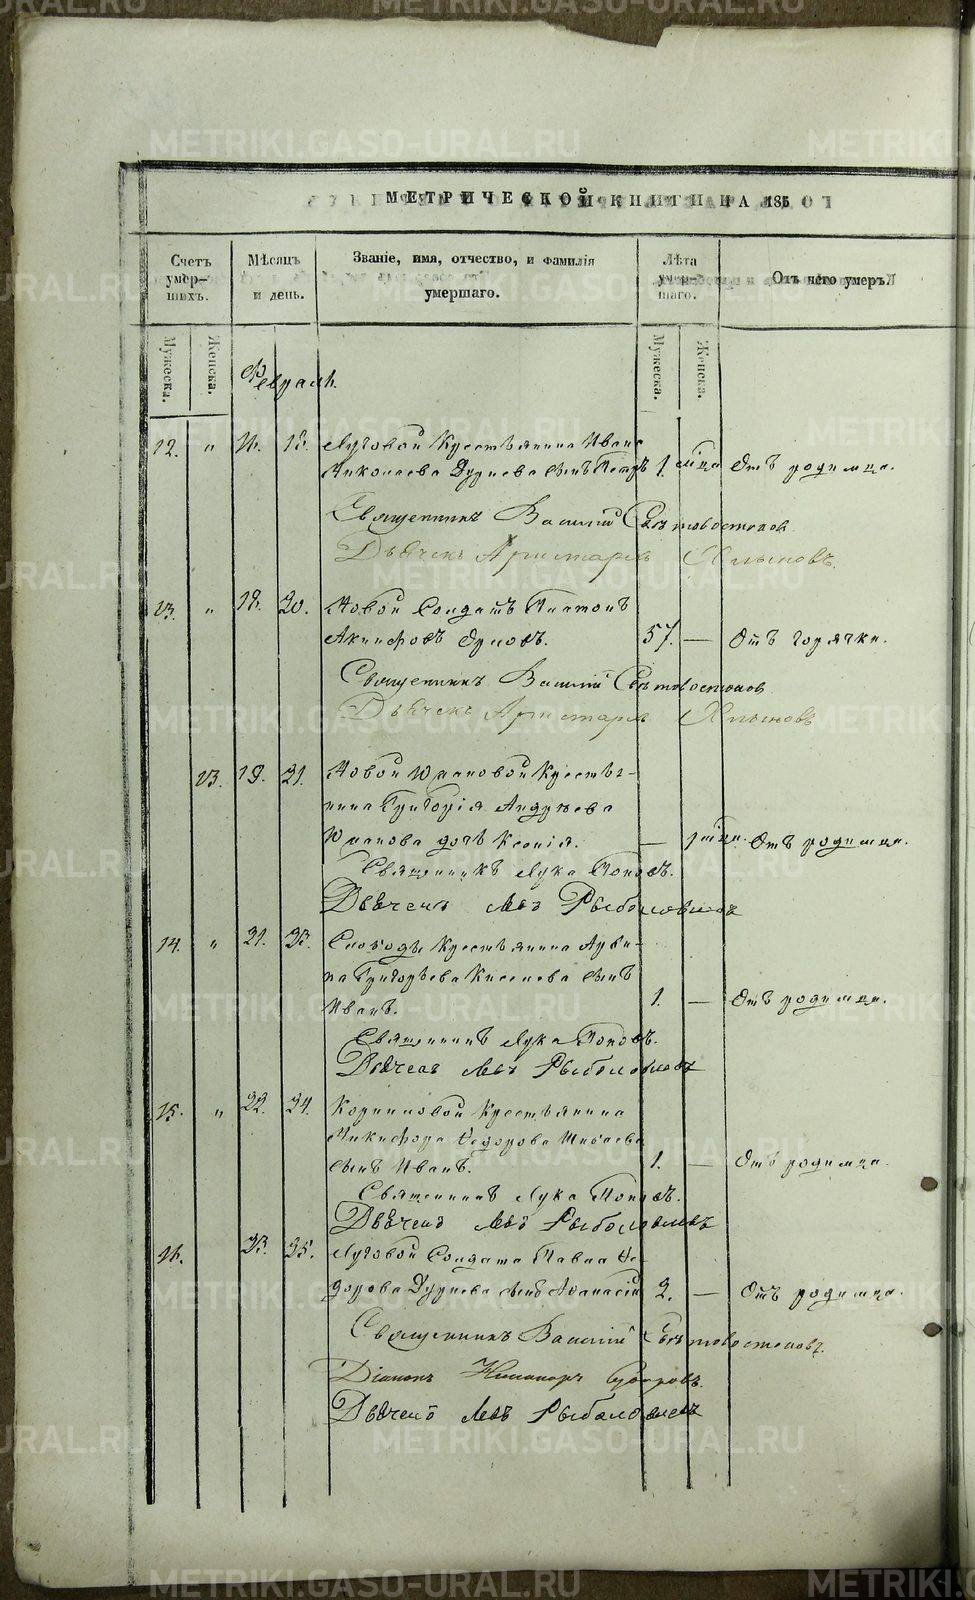 МЕТРИЧЕСКОЙ КНИГИ НА 185
Счетъ умер-шихъ.
Мѣсяцъ и день.
Званіе, имя, отчество, и фамилія умершаго.
Лѣта умер-шаго.
Отъ чего умеръ.
Мужеска.
Женска.
Мужеска.
Женска.
Февраль.
12. " 16. 18. Луговой Крестьянина Ивана
Николаева Дурнева сынъ Петръ 1. Отъ родимца.
Священникъ Василій Свѣтовостоковъ
Дьячекъ Аристархъ Хлыновъ.
13. " 18. 20. Новой Солдатъ Платонъ
Акинфовъ 57. — Отъ горячки.
Священникъ Василій Свѣтовостоковъ
Дьячекъ Аристархъ Хлыновъ
13. 19. 21. Новой Крестья-
нина Григорія Андреева
дочь Ксенія. — Отъ родимца.
Священникъ Лука Поповъ.
Дьячекъ Левъ Рыболовлевъ
14. " 21. 23. Слободы Крестьянина
Григорьева сынъ
Иванъ. 1. — Отъ родимца.
Священникъ Лука Поповъ.
Дьячекъ Левъ Рыболовлевъ
15. " 22. 24. Крестьянина
Никифора Ѳедорова
сынъ Иванъ. 1. — Отъ родимца.
Священникъ Лука Поповъ.
Дьячекъ Левъ Рыболовлевъ
16. 23. 25. Луговой Солдата Павла Ѳе-
дорова Дурнева сынъ Аѳанасій 2. — Отъ родимца.
Священникъ Василій Свѣтовостоковъ.
Діаконъ Никаноръ
Дьячекъ Левъ Рыболовлевъ
METRIKI.GASO-URAL.RU